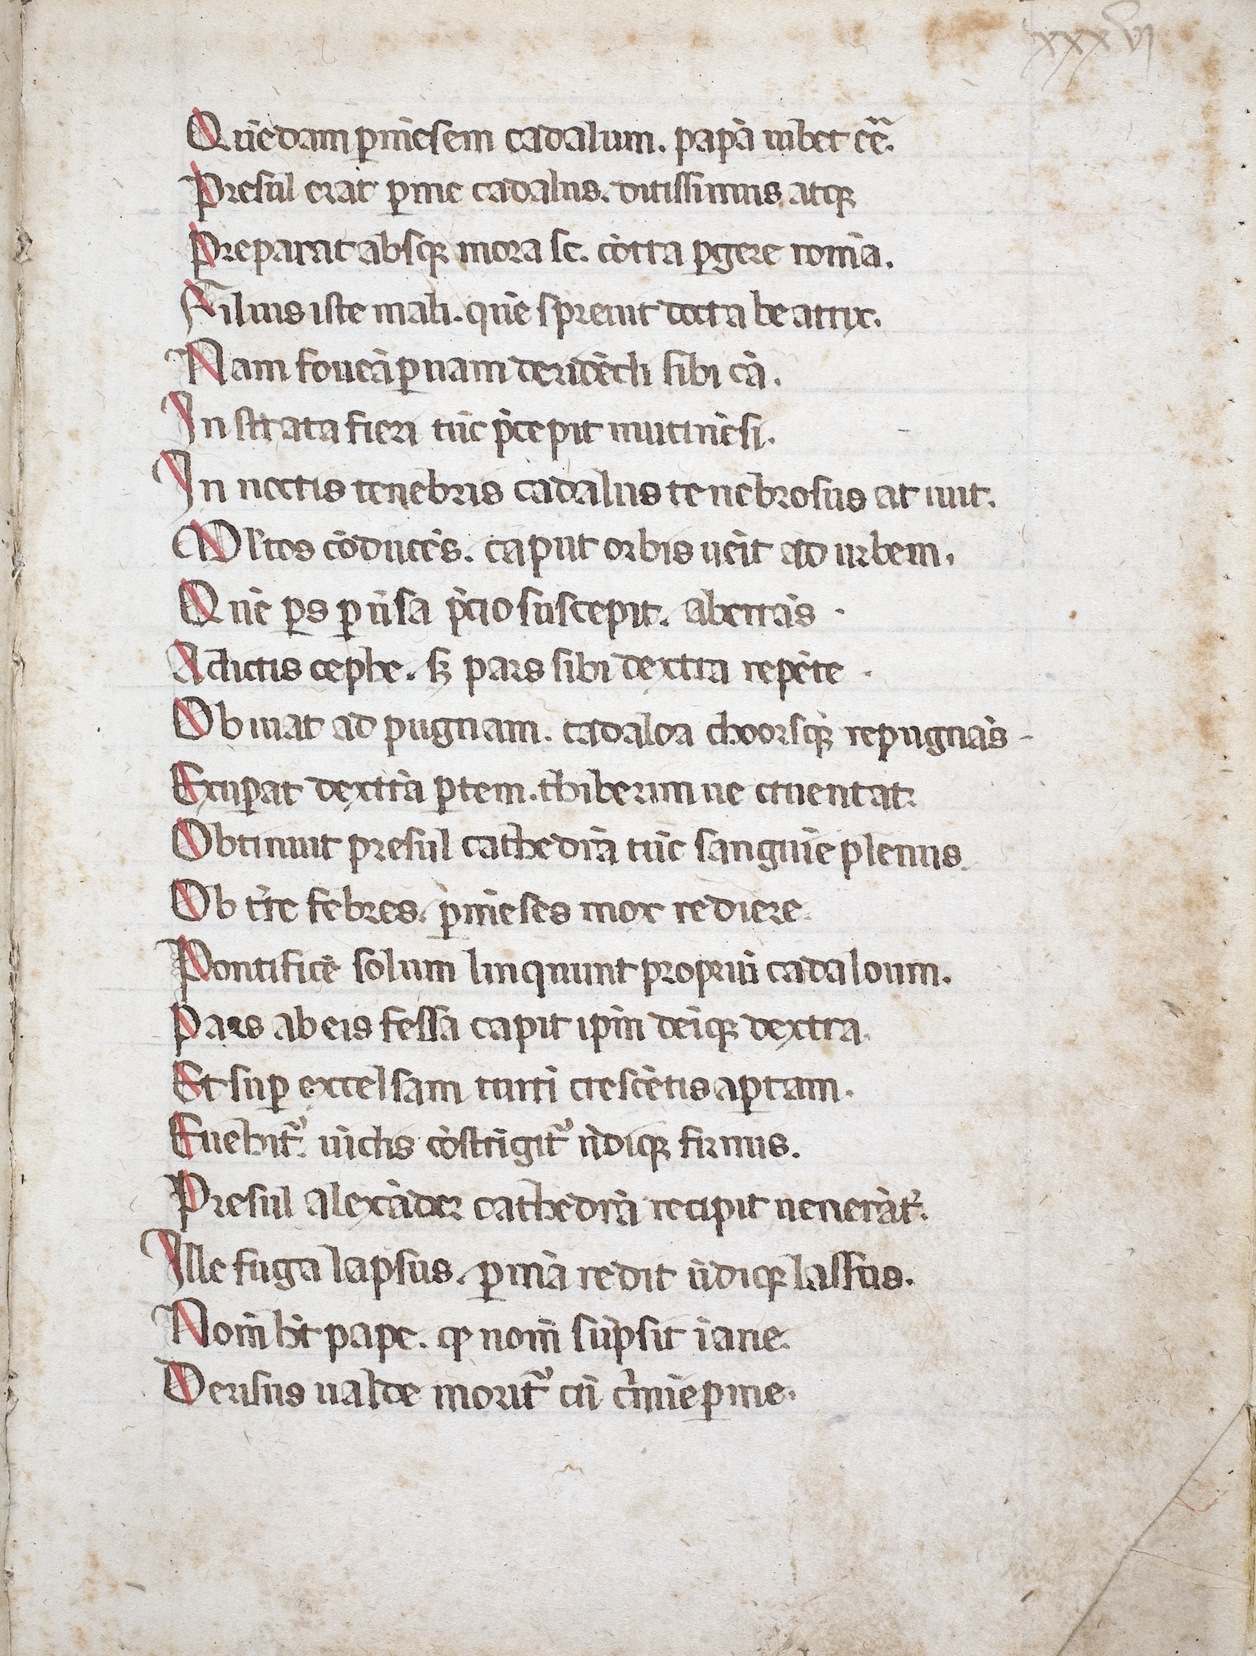 xxxvi
Quēdam pm̄esem cadalum. papā iubet eē.
Presul erat pme cadalus. ditissimus atqꝫ
Preparat absqꝫ mora se. cōtra pgere romā.
Filius iste mali. quē spreuit docta beatrix.
Nam foueā puam deridēdi sibi cā.
In strata fieri tūc p̄cepit mutinēsi.
In noctis tenebris cadalus tenebrosus at iuit.
Mltos cōducēs. caput orbis ueīt ad urbem.
Quē ps puīsa p̄cio suscepit. aberrās.
A dictis cephe. sꝫ pars sibi dextra repēte.
Obuiat ad pugnam. cadaloa choorsqꝫ repugnās
Exupat dextrā ptem. thiberimue cruentat.
Obtinuit presul cathedrā tūc sanguīe plenus.
Ob tr̄e febres. pm̄eses mox rediere.
Pontificē solum linquunt propriū cadaloum.
Pars ab eis fessa capit ip̄m deīqꝫ dextra.
Et sup excelsam turri crescētis aptam.
Euehitᷣ. uīclis cōstrīgitᷣ ūdiqꝫ firmus.
Presul alexāder cathedrā recipit ueneratᷣ.
Ille fuga lapsus. pmā redit ūdiqꝫ lassus.
Nom̄ ht̄ pape. qꝫ nom̄ sūpsit iane.
Derisus ualde moritᷣ cū cr̄mīe pme.